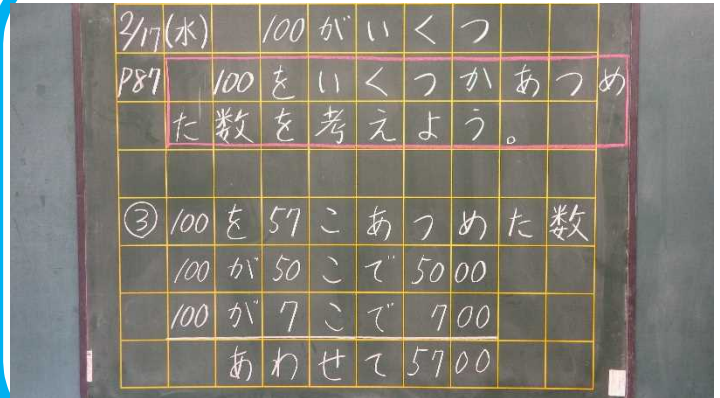 2/17(水) 100がいくつ
P87 100をいくつかあつめ
た数を考えよう。
③100を57こあつめた数
100が50こで5000
100が7こで700
あわせて5700